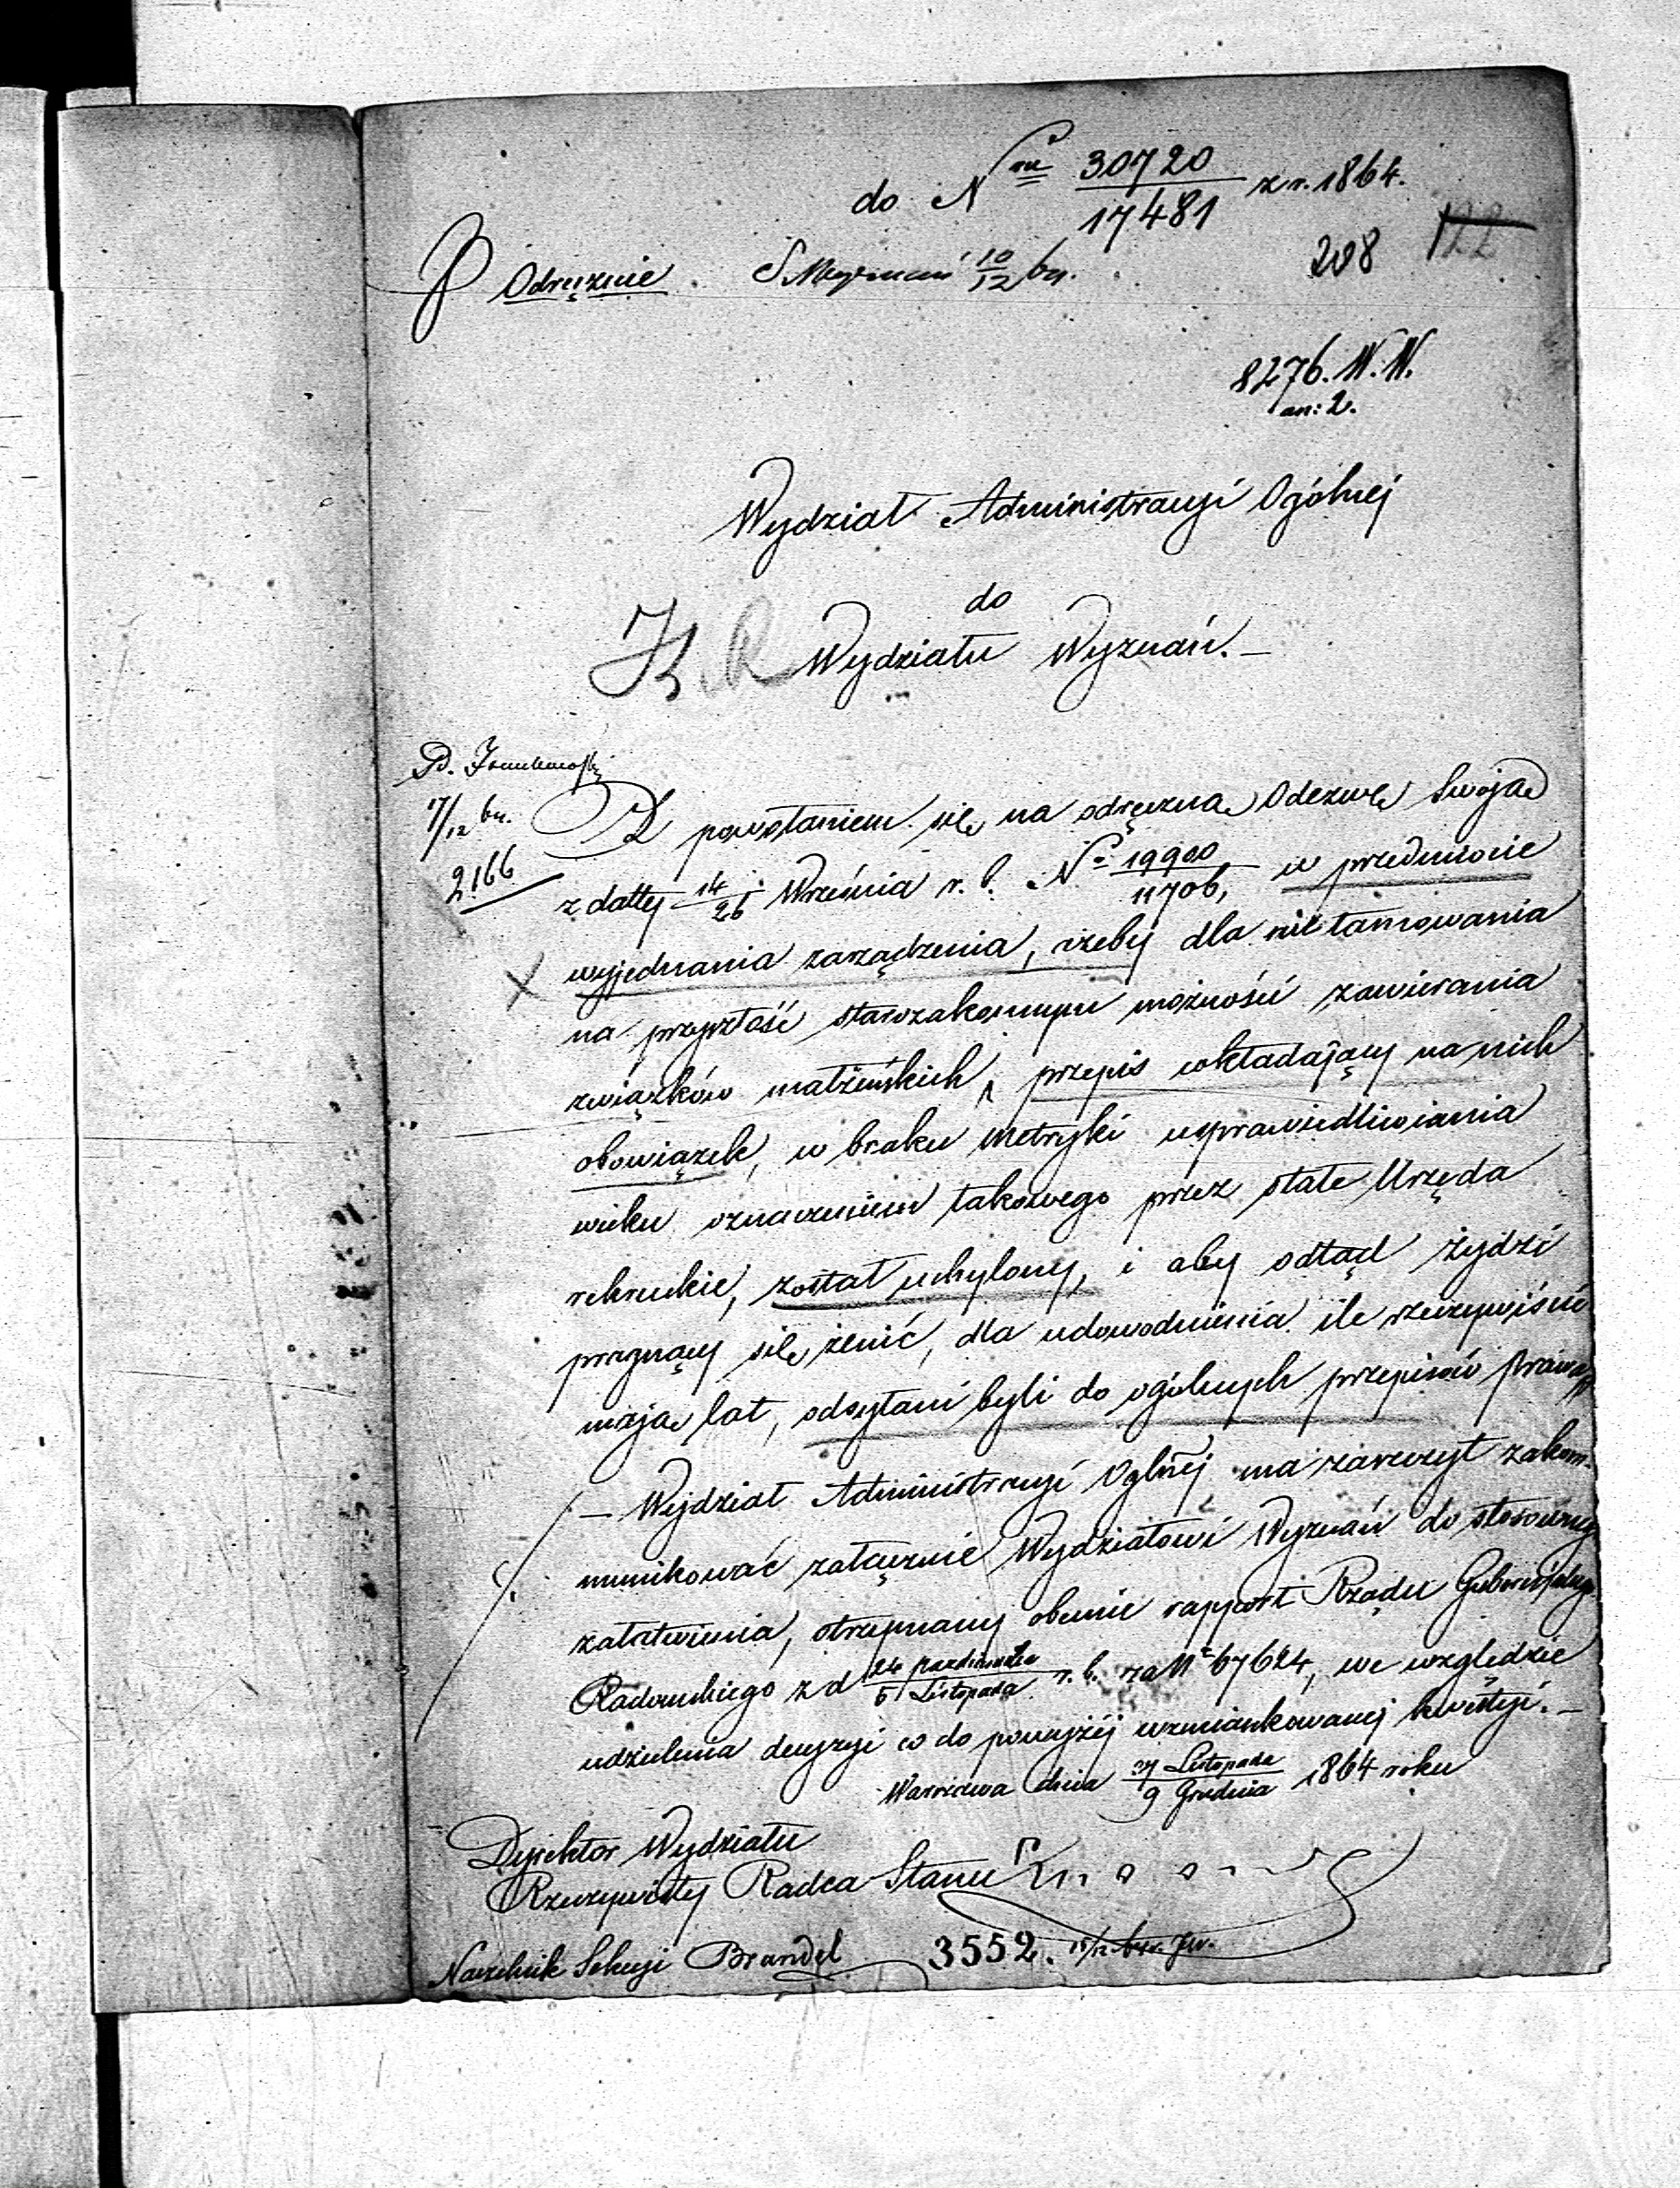 do Nru 30720/17481 z r. 1864.
Odręcznie. 10/12 64. 208 122
8276. W. W.
an: 2.
Wydział Administracyi Ogólnej
do
Wydziału Wyznań. —
17/12 64.
2166
Z powołaniem się na odręczną Odezwę Swoją
z datty 14/26 Września r. b. No 19900/11706, w przedmiocie
wyjednania zarządzenia, ażeby dla nie tamowania
na przyszłość starozakonnym możności zawierania
związków małżeńskich, przepis wkładający na nich
obowiązek, w braku metryki usprawiedliwiania
wieku oznaczeniem takowego przez stałe Urzęda
rekruckie, został uchylony, i aby odtąd żydzi
pragnący się żenić, dla udowodnienia ile rzeczywiście
mają lat, odsyłani byli do ogólnych przepisów prawa
— Wydział Administracyi Oglnej ma zaszczyt zakom-
munikować załącznie Wydziałowi Wyznań do stosownego
załatwienia, otrzymany obecnie rapport Rządu Gubernialnego
Radomskiego z d 24 Października/5 Listopada r. b. za No 67624, we względzie
udzielenia decyzyi co do powyżéj wzmiankowanej kwestyi. —
Warszawa dnia 27 Listopada/9 Grudnia 1864 roku
Dyrektor Wydziału
Rzeczywisty Radca Stanu
Naczelnik Sekcyi Brandel 3552. 15/12 64.